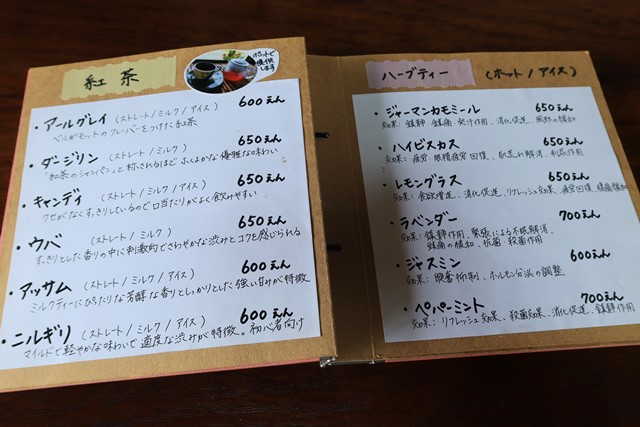 紅茶
ポットで
提供
します
・アールグレイ (ストレート/ミルク/アイス) 600えん
ベルガモットのフレーバーをつけた紅茶
・ダージリン (ストレート/ミルク) 650えん
「紅茶のシャンパン」と称されるほど ふくよかな優雅な味わい
・キャンディ (ストレート/ミルク/アイス) 650えん
クセがなくすっきりしているので口当たりがよく飲みやすい
・ウバ (ストレート/ミルク) 650えん
すっきりとした香りの中に刺激的でさわやかな渋みとコクを感じられる
・アッサム (ストレート/ミルク/アイス) 600えん
ミルクティーにぴったりな芳醇な香りとしっかりとした強い甘みが特徴
・ニルギリ (ストレート/ミルク/アイス) 600えん
マイルドで軽やかな味わいで適度な渋みが特徴。初心者向け
ハーブティー (ホット/アイス)
・ジャーマンカモミール 650えん
効果: 鎮静、鎮痛、発汗作用、消化促進、風邪の緩和
・ハイビスカス 650えん
効果: 疲労、眼精疲労回復、肌荒れ解消、利尿作用
・レモングラス 650えん
効果: 食欲増進、消化促進、リフレッシュ効果、疲労回復
・ラベンダー 700えん
効果: 鎮静作用、緊張による不眠解消、
頭痛の緩和、抗菌、殺菌作用
・ジャスミン 600えん
効果: 興奮抑制、ホルモン分泌の調整
・ペパーミント 700えん
効果: リフレッシュ効果、殺菌効果、消化促進、鎮静作用